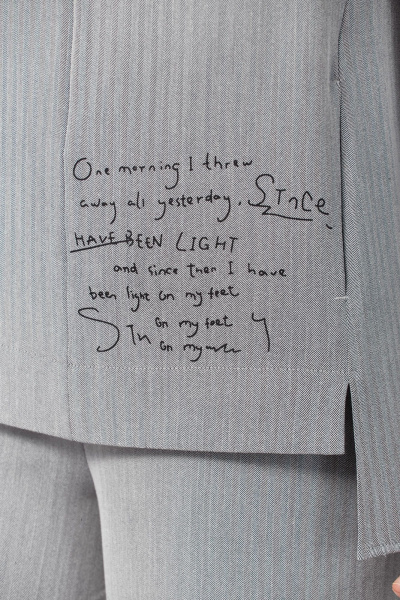 One morning I threw
away all yesterday. STnCe
HAVE BEEN LIGHT
and since then I have
been light on my feet
on my feet
STn
on my